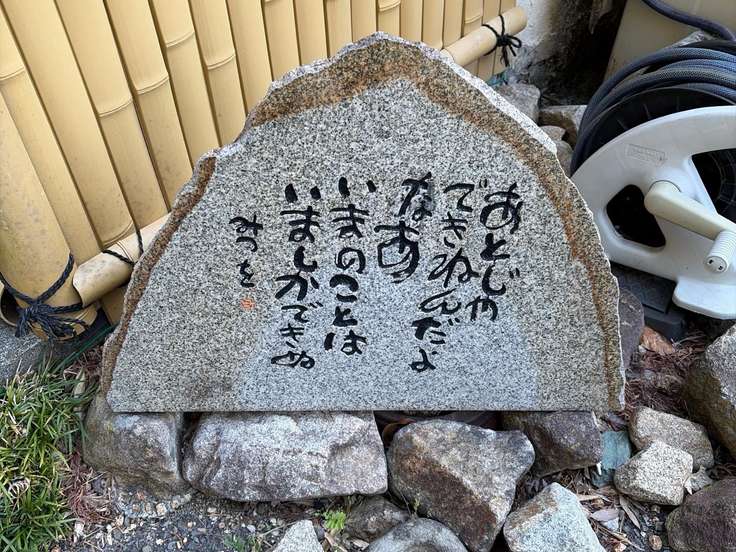 あとじゃ
できねんだよ
なあ
いまのことは
いましかできぬ
みつを